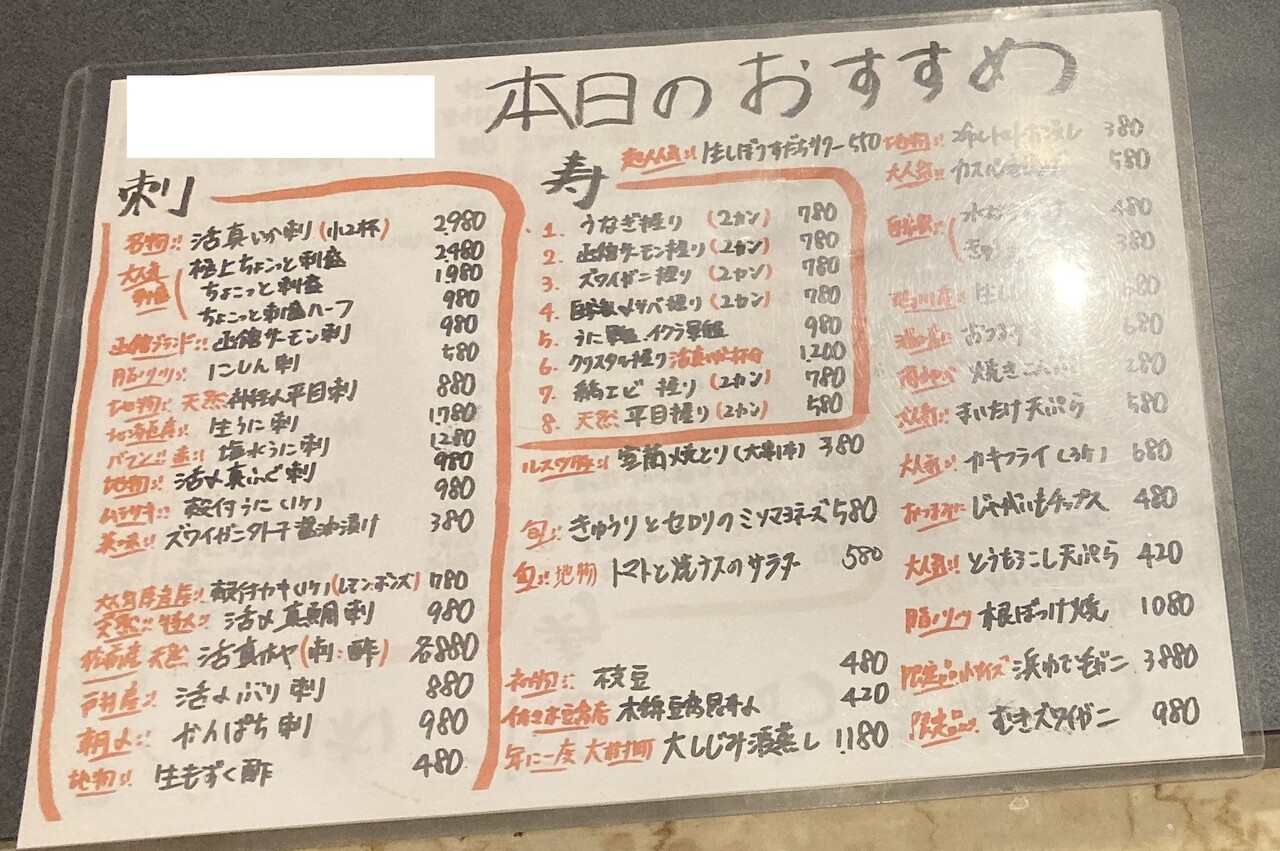 本日のおすすめ
刺
名物!! 活真いか刺 (小1杯) 2980
大人気 刺盛 極上ちょこっと刺盛 2480
ちょこっと刺盛 1980
ちょこっと刺盛ハーフ 980
函館ブランド!! 函館サーモン刺 980
脂ノリノリ!! にしん刺 580
地物!! 天然神経〆平目刺 880
北海道産!! 生うに刺 1,780
バフン!! 赤!! 塩水うに刺 1,280
地物!! 活〆真ふぐ刺 980
ムラサキ!! 殻付うに(1ケ) 980
美味!! ズワイガニ外子醤油漬け 380
殻付カキ(1ケ)(レモン・ポンズ) 780
天然!! 特大!! 活〆真鯛刺 980
天然 活真ホヤ(刺・酢) 各880
戸井産!! 活〆ぶり刺 880
朝〆!! かんぱち刺 980
地物!! 生もずく酢 480
超人気!! 生しぼりすだちサワー 550
寿
1. うなぎ握り (2カン) 780
2. 函館サーモン握り (2カン) 780
3. ズワイガニ握り (2カン) 780
4. 自家製〆サバ握り (2カン) 780
5. うに軍艦、イクラ軍艦 980
6. クリスタル握り 1,200
7. 縞エビ握り (2カン) 780
8. 天然 平目握り (2カン) 580
ルスツ豚!! 室蘭焼とり(大串1本) 380
旬!! きゅうりとセロリのミソマヨネーズ 580
旬!! 地物 トマトと焼ナスのサラダ 580
初物!! 枝豆 480
木綿豆腐昆布〆 420
年に一度 大樹町 大しじみ酒蒸し 1,180
地物!! 冷しトマト 380
大人気!! 580
自家製!! 480
きゅう 380
生し
おつまみ
焼き 280
大人気!! まいたけ天ぷら 580
大人気!! カキフライ(3ケ) 680
おつまみに じゃがいもチップス 480
大人気!! とうもろこし天ぷら 420
脂ノリノリ 根ぼっけ焼 1080
限定品 小サイズ 浜ゆで毛ガニ 3880
限定品!! むきズワイガニ 980